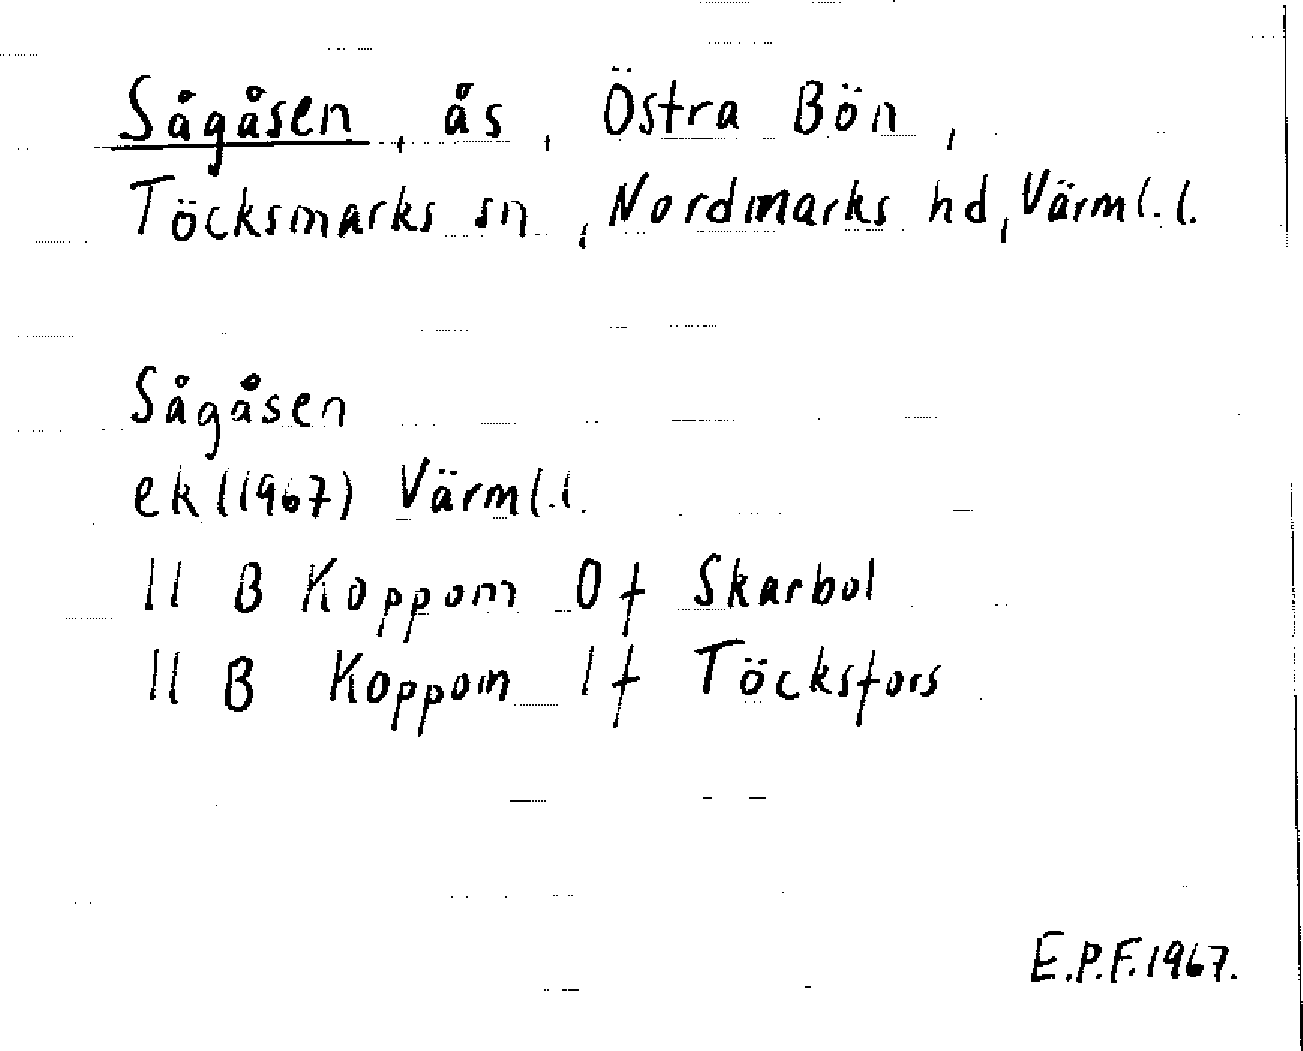 Sågåsen, ås, Östra Bön,
Töcksmarks sn, Nordmarks hd, Värml.l.
Sågåsen
ek (1967) Värml.l.
11 B Koppom 0f Skarbol
11 B Koppom 1f Töcksfors
E.P.F. 1967.